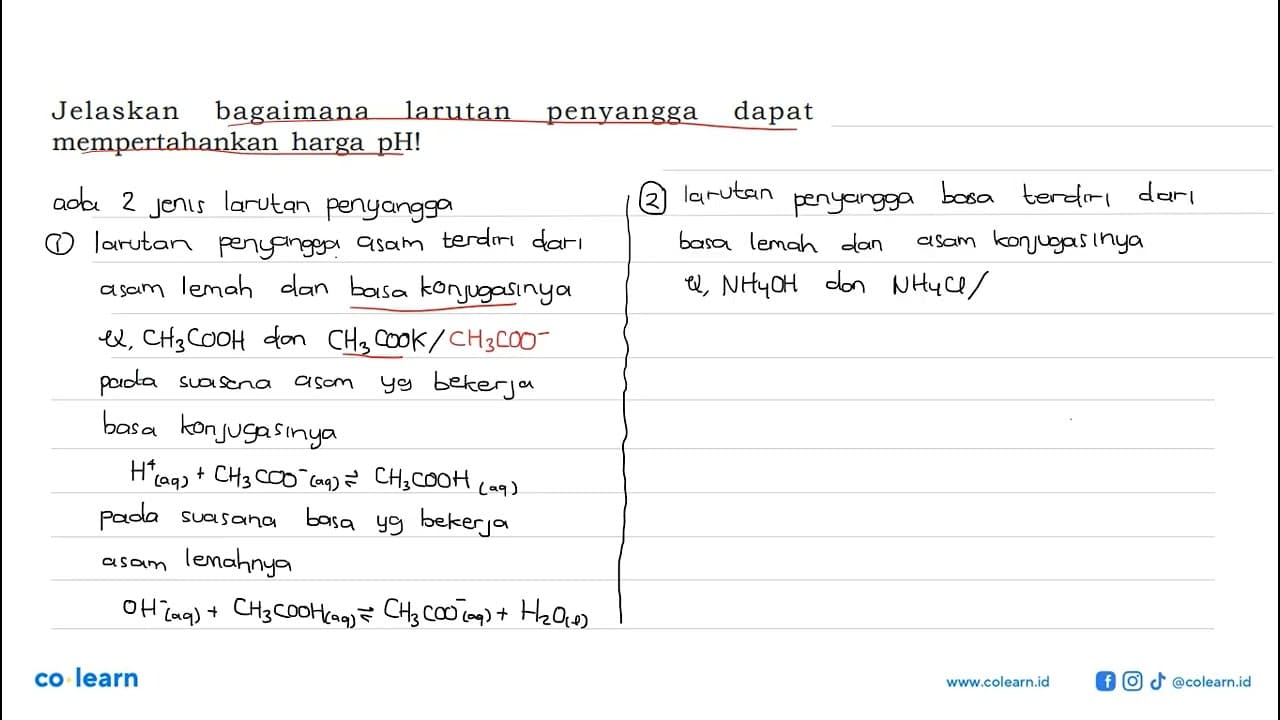 Jelaskan bagaimana larutan penyangga dapat
mempertahankan harga pH!
ada 2 jenis larutan penyangga
① larutan penyangga asam terdiri dari
asam lemah dan basa konjugasinya
ex, CH₃COOH dan CH₃COOK/CH₃COO⁻
pada suasana asam yg bekerja
basa konjugasinya
H⁺(aq) + CH₃COO⁻(aq) ⇌ CH₃COOH(aq)
pada suasana basa yg bekerja
asam lemahnya
OH⁻(aq) + CH₃COOH(aq) ⇌ CH₃COO⁻(aq) + H₂O(l)
② larutan penyangga basa terdiri dari
basa lemah dan asam konjugasinya
ex, NH₄OH dan NH₄Cl/
co learn
www.colearn.id
@colearn.id